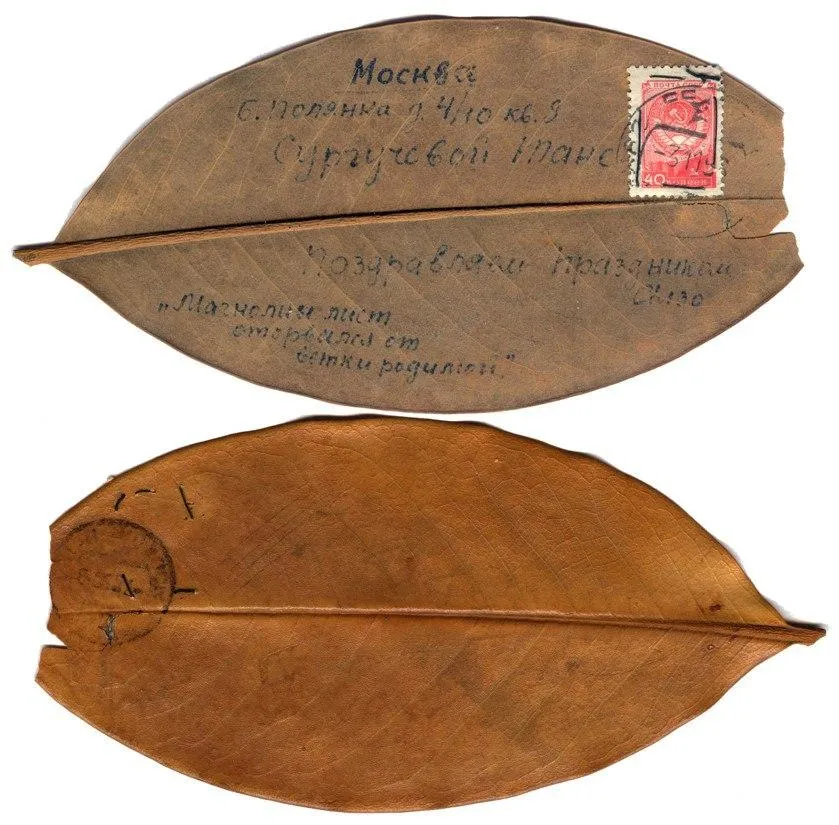 Москва
Б. Полянка д. 4/10 кв. 9
Сургучевой Тане
40
Поздравляем праздником
„Магнолии лист
оторвался от
ветки родимой."